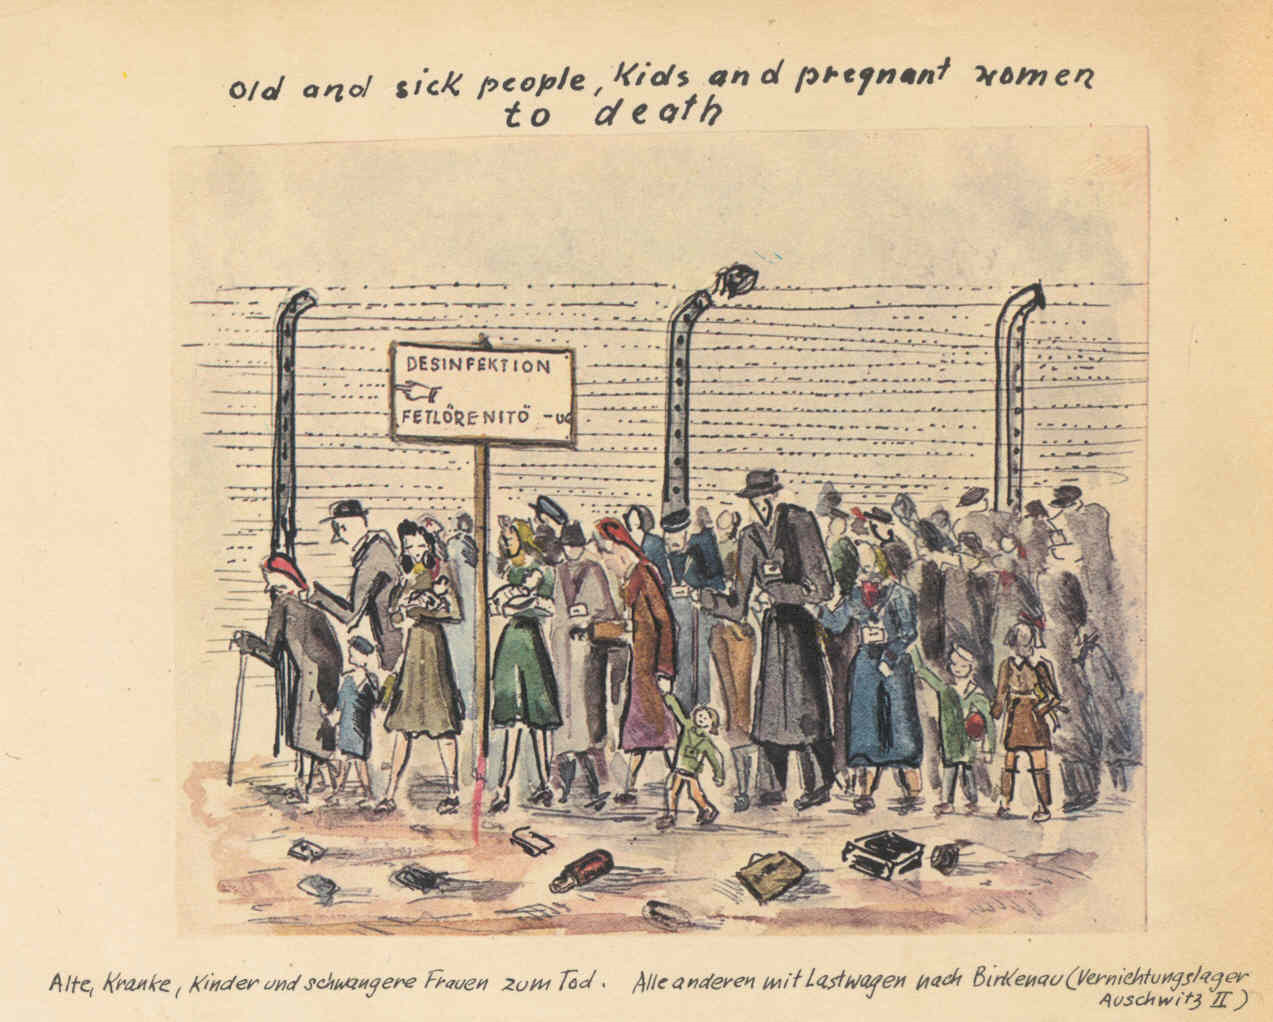 Old and sick people, Kids and pregnant women
to death
DESINFEKTION
FETLÖRENITÖ - UG
Alte, Kranke, Kinder und schwangere Frauen zum Tod. Alle anderen mit Lastwagen nach Birkenau (Vernichtungslager
Auschwitz II)